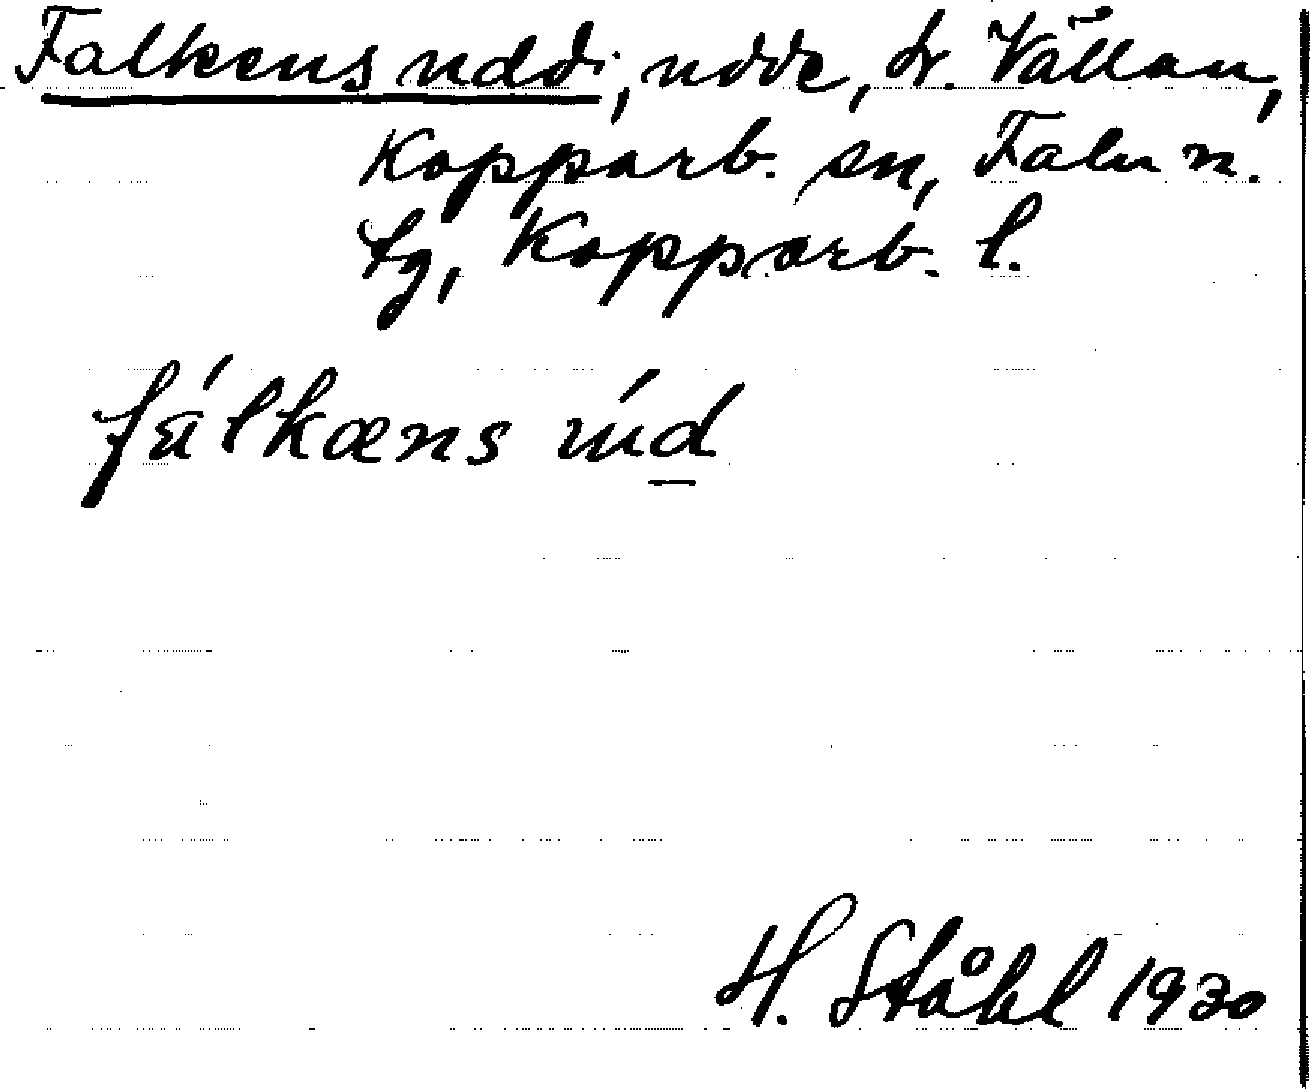 Falkens udd, udde, tr. Vällan,
Kopparb. sn, Falu n.
tg, Kopparb. l.
fálkæns úd
H. Ståhl 1930